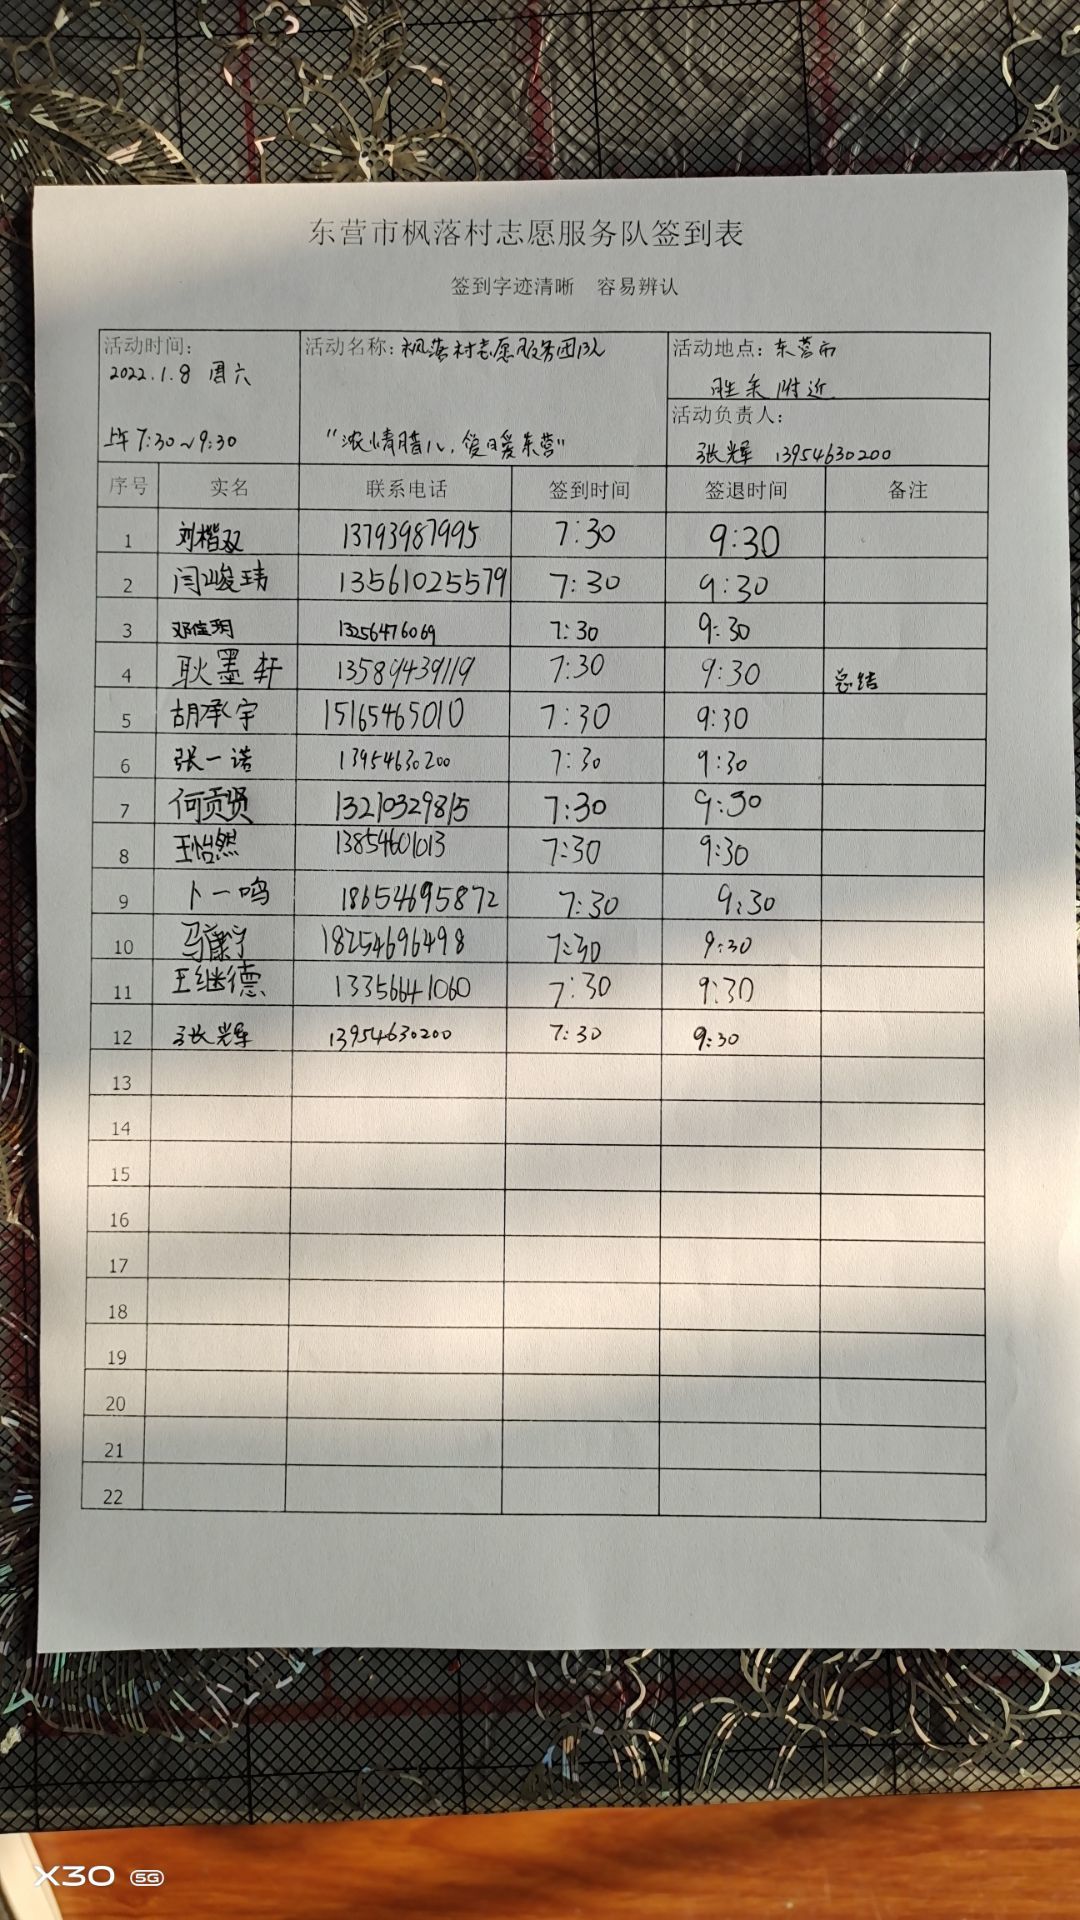 东营市枫落村志愿服务队签到表
签到字迹清晰 容易辨认
活动时间:
2022.1.8 周六
上午7:30~9:30
活动名称: 枫落村志愿服务团队
"浓情腊八,爱暖东营"
活动地点: 东营市
胜东附近
活动负责人:
张辉 13954630200
序号 实名 联系电话 签到时间 签退时间 备注
1 刘楷双 13793987995 7:30 9:30
2 闫峻玮 13561025579 7:30 9:30
3 邓佳玥 13256476069 7:30 9:30
4 耿墨轩 13589439119 7:30 9:30 总结
5 胡承宇 15165465010 7:30 9:30
6 张一诺 13954630200 7:30 9:30
7 何贡贤 13210329815 7:30 9:30
8 王怡然 13854601013 7:30 9:30
9 卜一鸣 18654695872 7:30 9:30
10 马康宁 18254696498 7:30 9:30
11 王继德 13356641060 7:30 9:30
12 张辉 13954630200 7:30 9:30
13
14
15
16
17
18
19
20
21
22
X30 5G